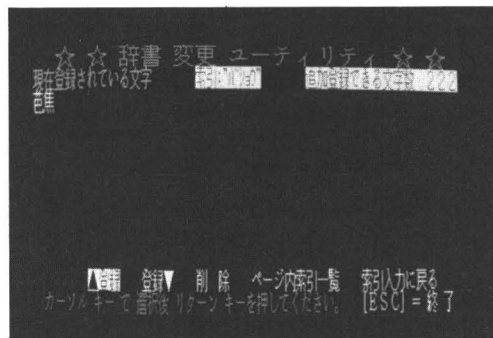 ☆ ☆ 辞書 変更 ユーティリティ ☆ ☆
現在登録されている文字 索引:"ﾊﾞｼｮｳ" 追加登録できる文字数 222
芭蕉
登録▼ 削 除 ページ内索引一覧 索引入力に戻る
カーソル キーで 選択後 リターン キーを押してください。 [ESC] = 終 了